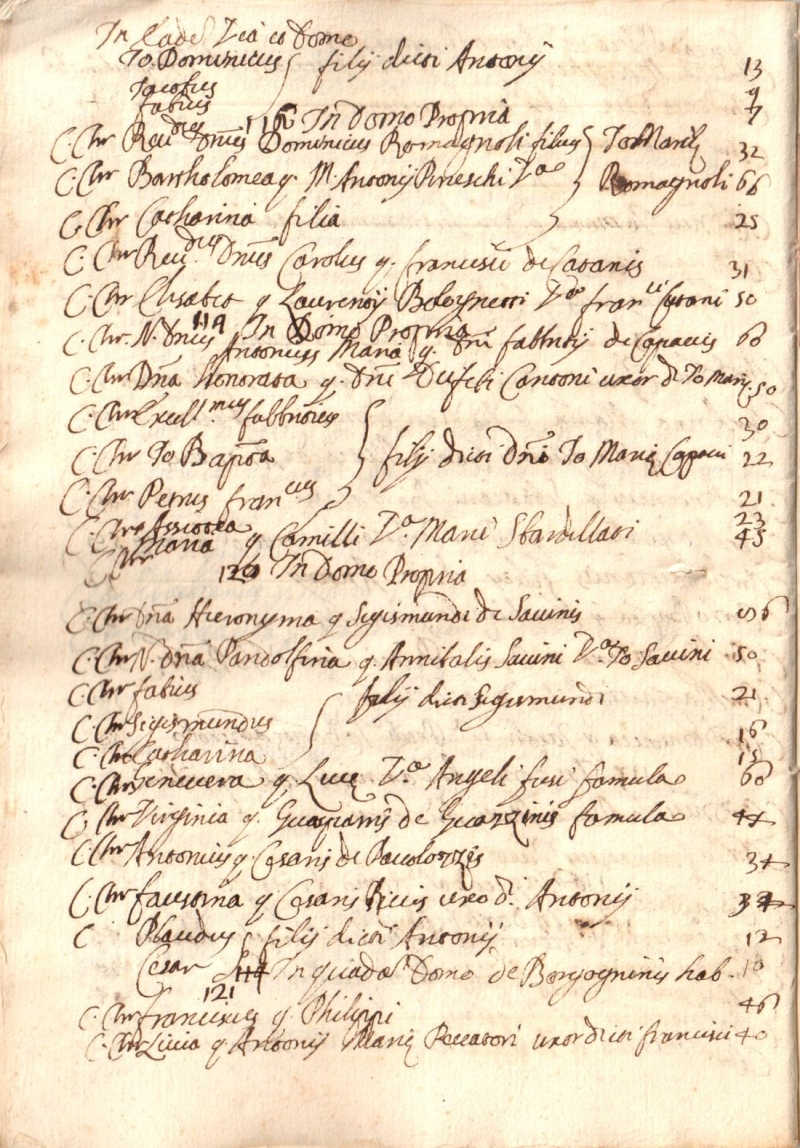 In Eade Via et Domo
Io. Dominicus } filij dicti Antonij 13
Jacobus 9
Fabius 7
118 In Domo Propria
C. Chr Reu. Dnus Dominicus Romagnoli filius } Io Mariæ 32
C. Chr Bartholomea q. M. Antonij Va Romagnoli 66
C. Chr Catharina filia 25
C. Chr Reu. Dnus Carolus q. Francisci de Catanis 31
C. Chr Elisabet q. Laurentij Bolognetti Va Franci Catani 50
119 In Domo Propria
C. Chr. N. Dnus Antonius Maria q. Dni Fabbritij de Capaccis 60
C. Chr Dna Honorata q. Dni Cantoni uxor di Io Mariæ 50
C. Chr Excell. Fabbritius 30
C. Chr Io Bapta } filij dicti Dni Io Mariæ Capacci 22
C. Chr Petrus Francus 21
C. Chr 23
C. Chr q Camilli Va Mari Sbardellati 45
120 In Domo Propria
C. Chr Dna Hieronyma q Sigismundi de Sauinis 56
C. Chr N. Dna Pandolfina q. Annibalis Sauini Va. Io Sauini 50
C. Chr Fabius } filij dicti Sigismundi 21
C. Chr Sigismundus 16
C. Chr Catharina 15
C. Chr Geneuera q. Lucæ Va Angeli fusi famula 60
C. Chr Virginia q. de famula 44
C. Chr Antonius q Cesaris de Paulozzis 34
C. Chr Faustina q Cesaris uxo di. Antonij 34
C Plaudus } filij dicti Antonij 12
Cesar 10
121 In quada Domo de Borgogninis hab.
C. Chr Franciscus q. Philippi 46
C. Chr Liuia q. Antonij Mariæ Peccatori uxor dicti Francisci 40